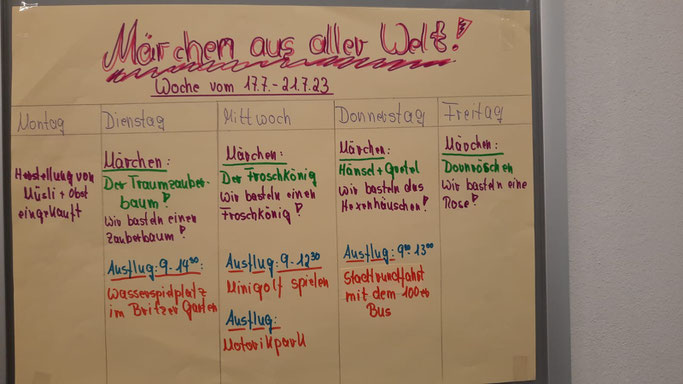 Märchen aus aller Welt!
Woche vom 17.7.-21.7.23
Montag
Herstellung von
Müsli + Obst
eingekauft
Dienstag
Märchen:
Der Traumzauber-
baum!
Wir basteln einen
Zauberbaum!
Ausflug: 9-14⁰⁰:
Wasserspielplatz
im Britzer Garten
Mittwoch
Märchen:
Der Froschkönig
Wir basteln einen
Froschkönig!
Ausflug 9-12³⁰
Minigolf spielen
Ausflug:
Motorikpark
Donnerstag
Märchen:
Hänsel + Gretel
Wir basteln das
Hexenhäuschen!
Ausflug: 9⁰⁰-13⁰⁰
Stadtrundfahrt
mit dem 100er
Bus
Freitag
Märchen:
Dornröschen
Wir basteln eine
Rose!